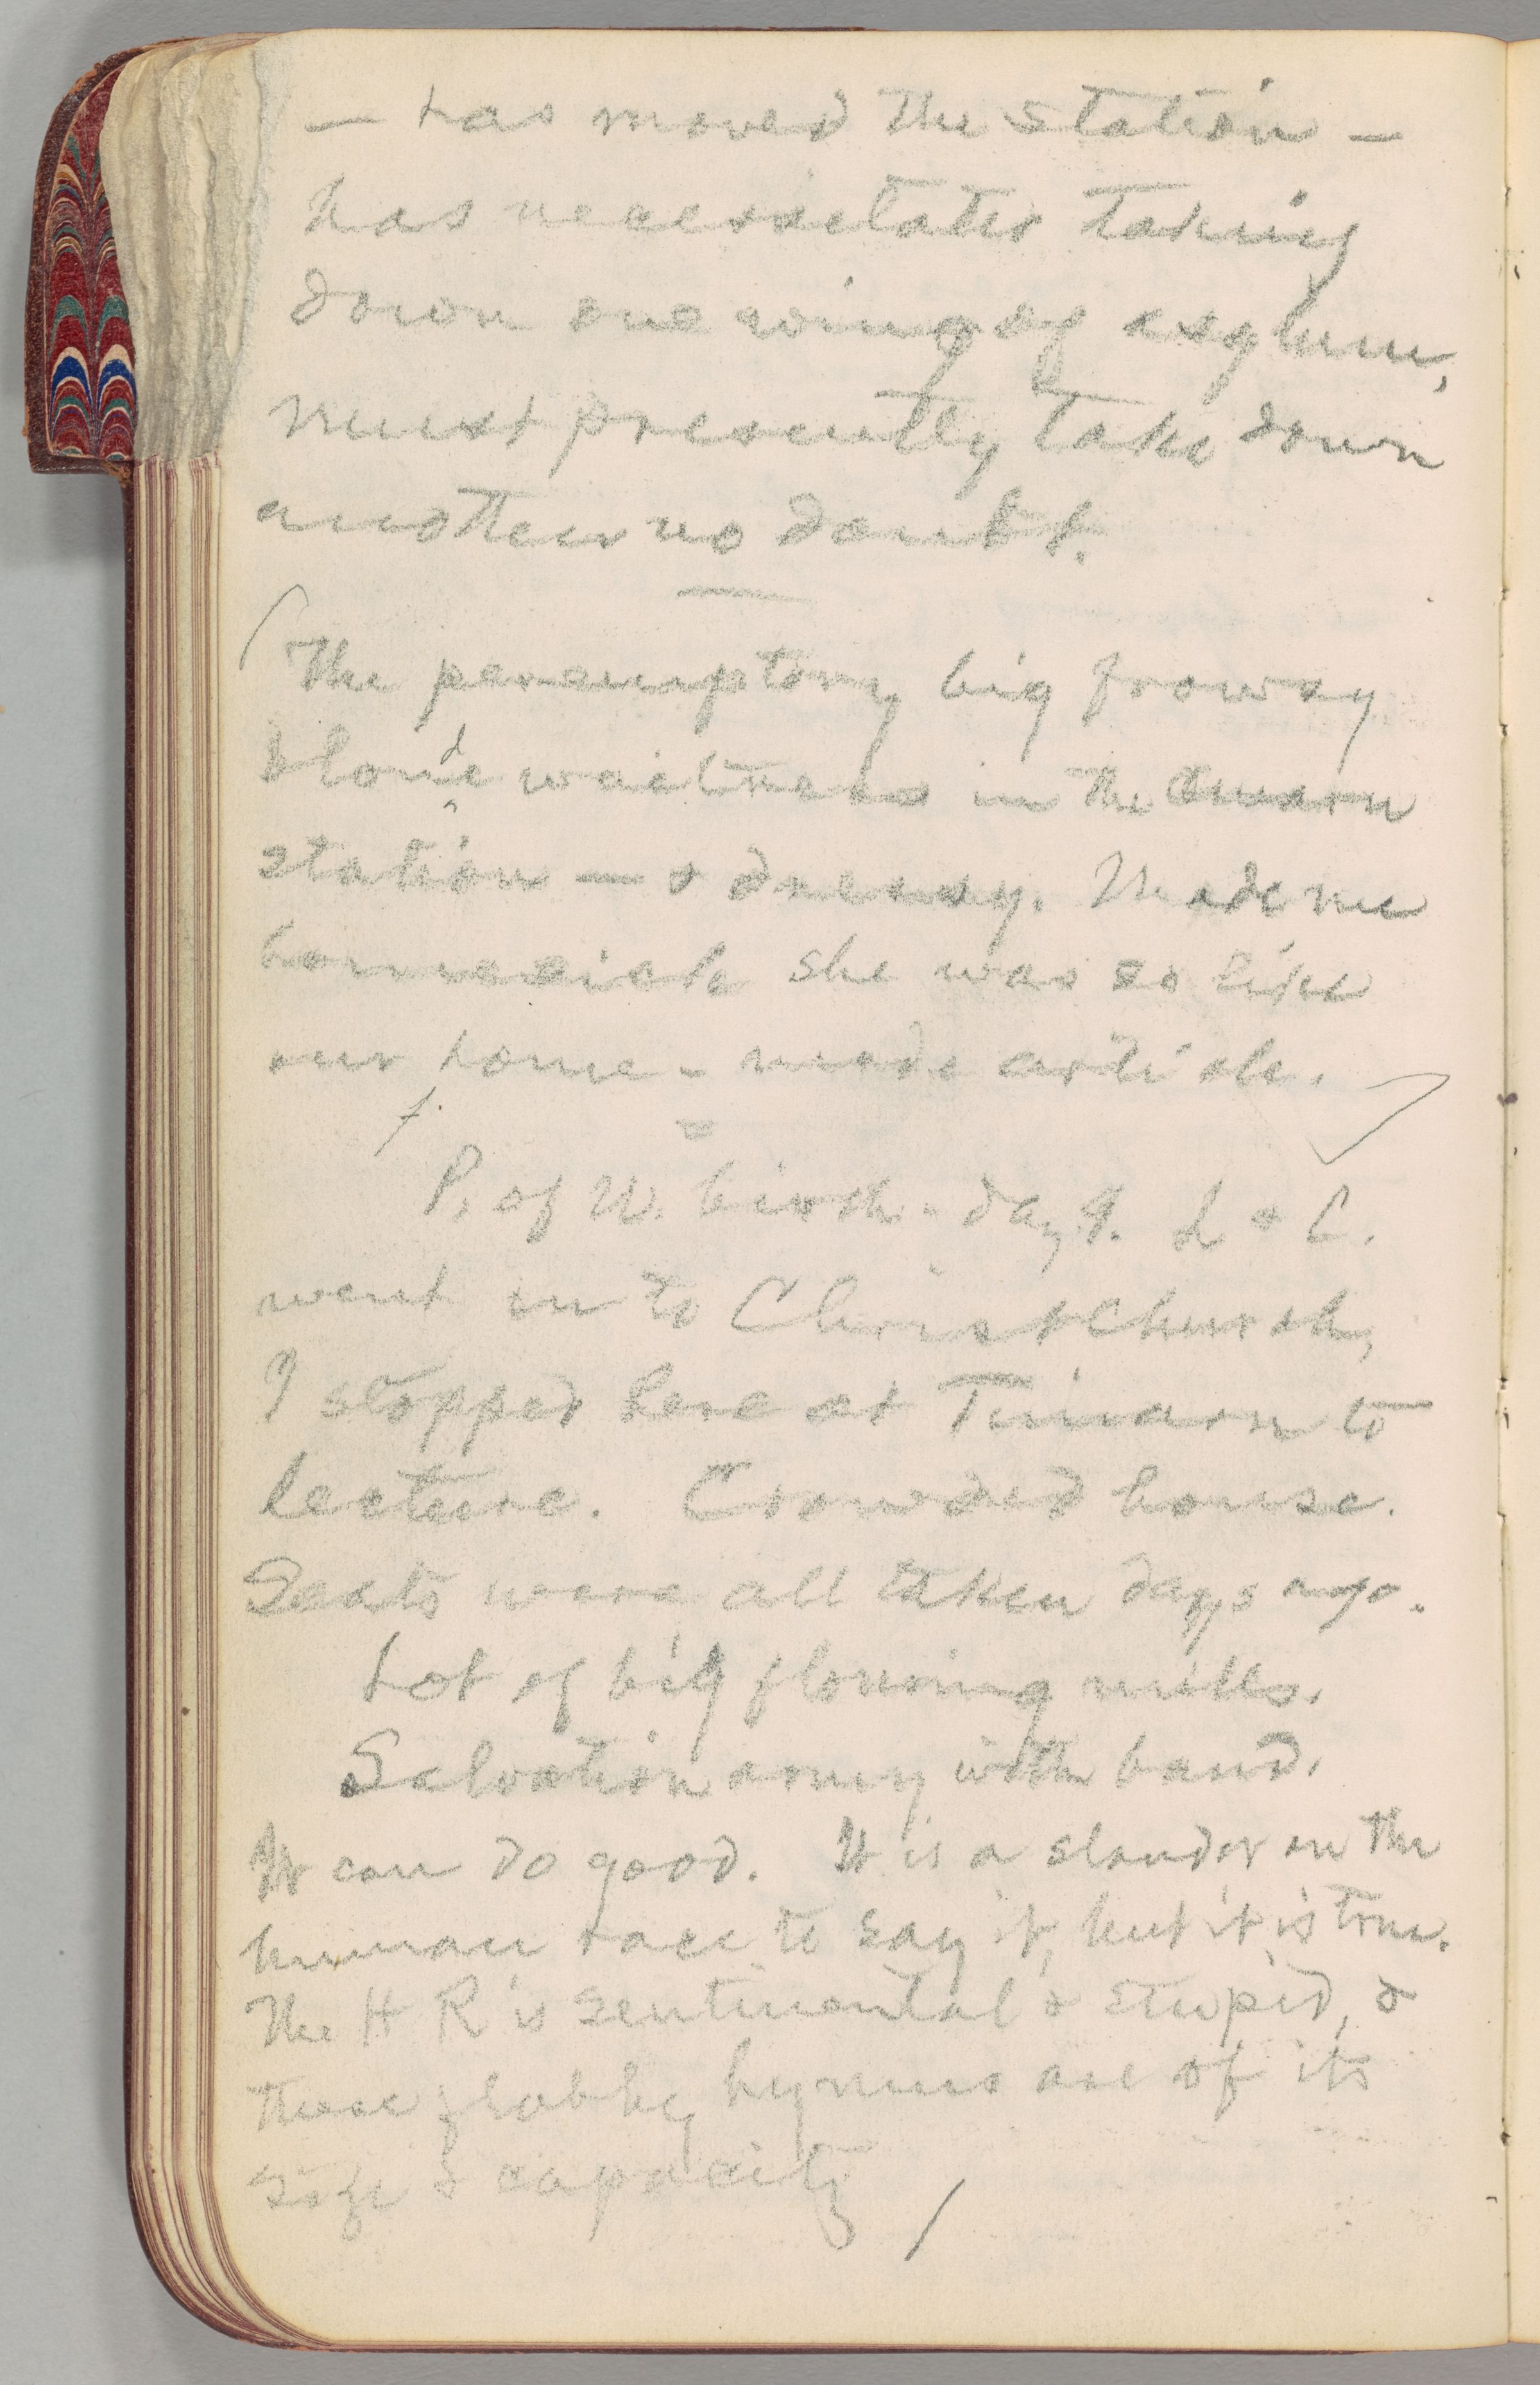 — has moved the station —
has necessitated taking
down one wing of asylum,
must presently take down
another no doubt.
The peremptory big frowsy
blonde waitress in the
station — & dressy. Made me
homesick she was so like
our home-made article.
P. of W. birth-day 9. L & C.
went on to Christchurch,
I stopped here at Timaru to
lecture. Crowded house.
Seats were all taken days ago.
Lot of big flouring mills.
Salvation army with band.
It can do good. It is a slander on the
human race to say it, but it is true.
The H R is sentimental & stupid, &
these flabby hymns are of its
size & capacity